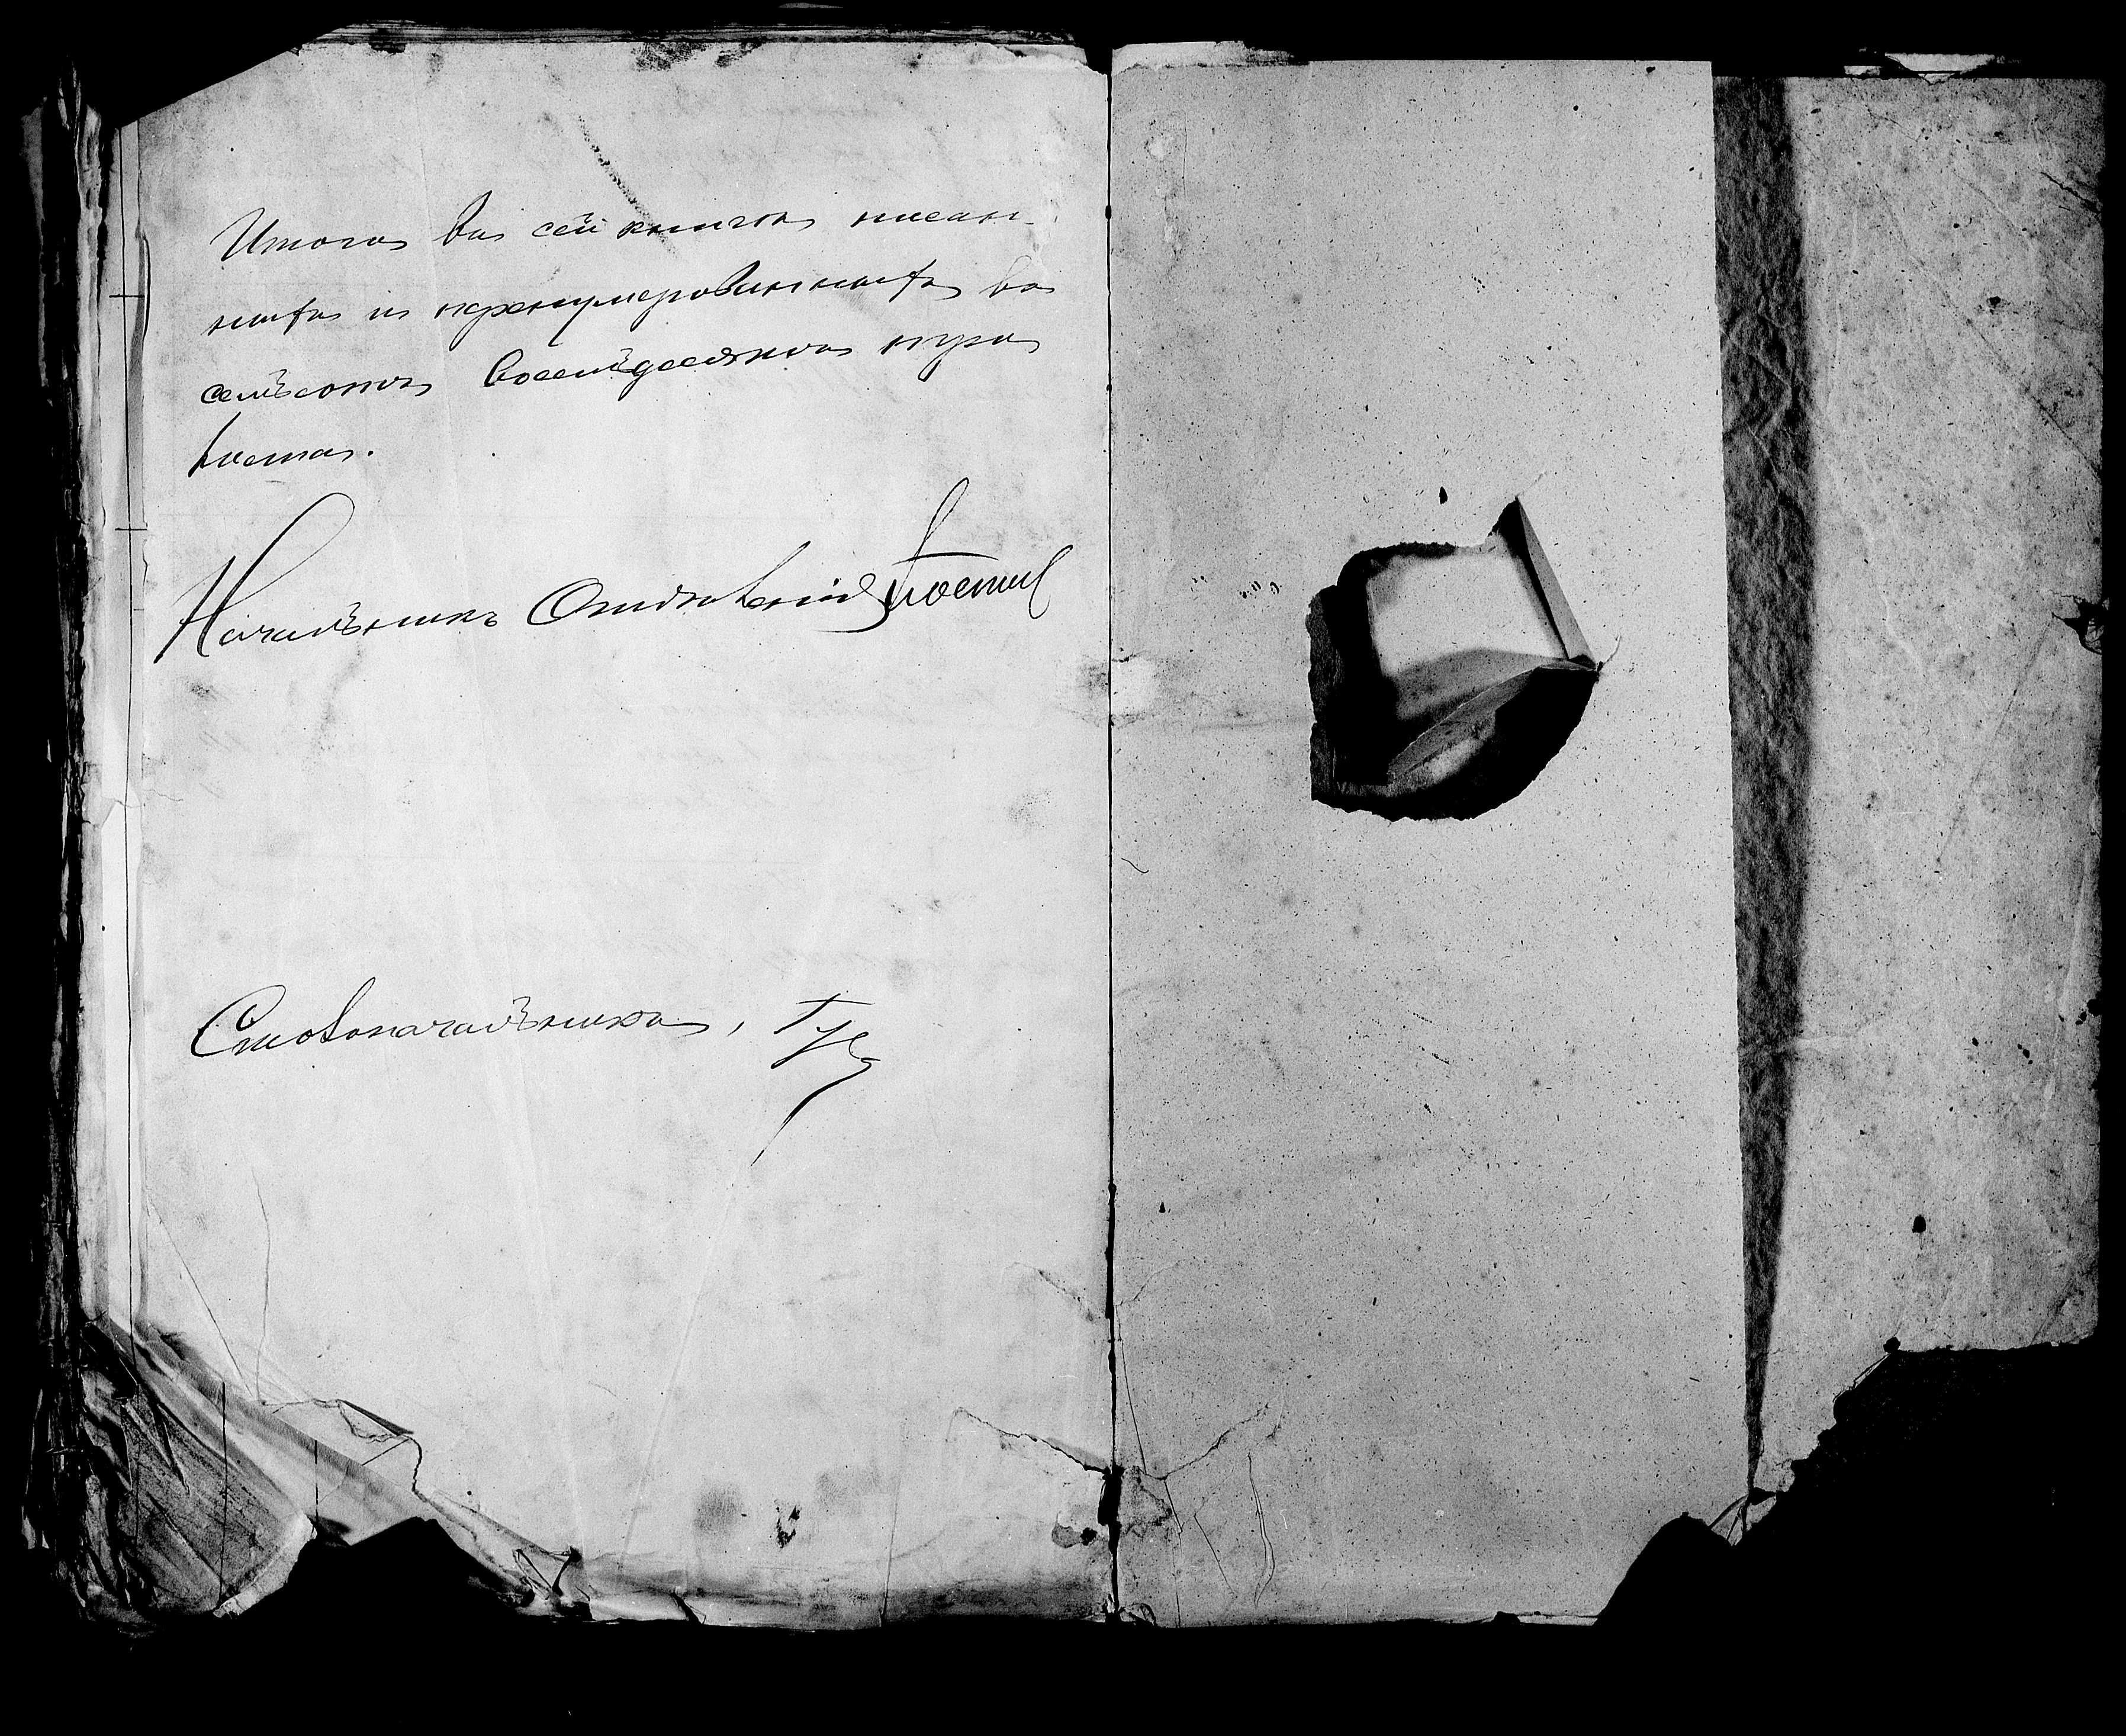 Итого въ сей книгѣ писан-
ныхъ и перенумерованныхъ
семьсотъ восемьдесятъ
листа.
Начальникъ Отдѣленія
Столоначальникъ,